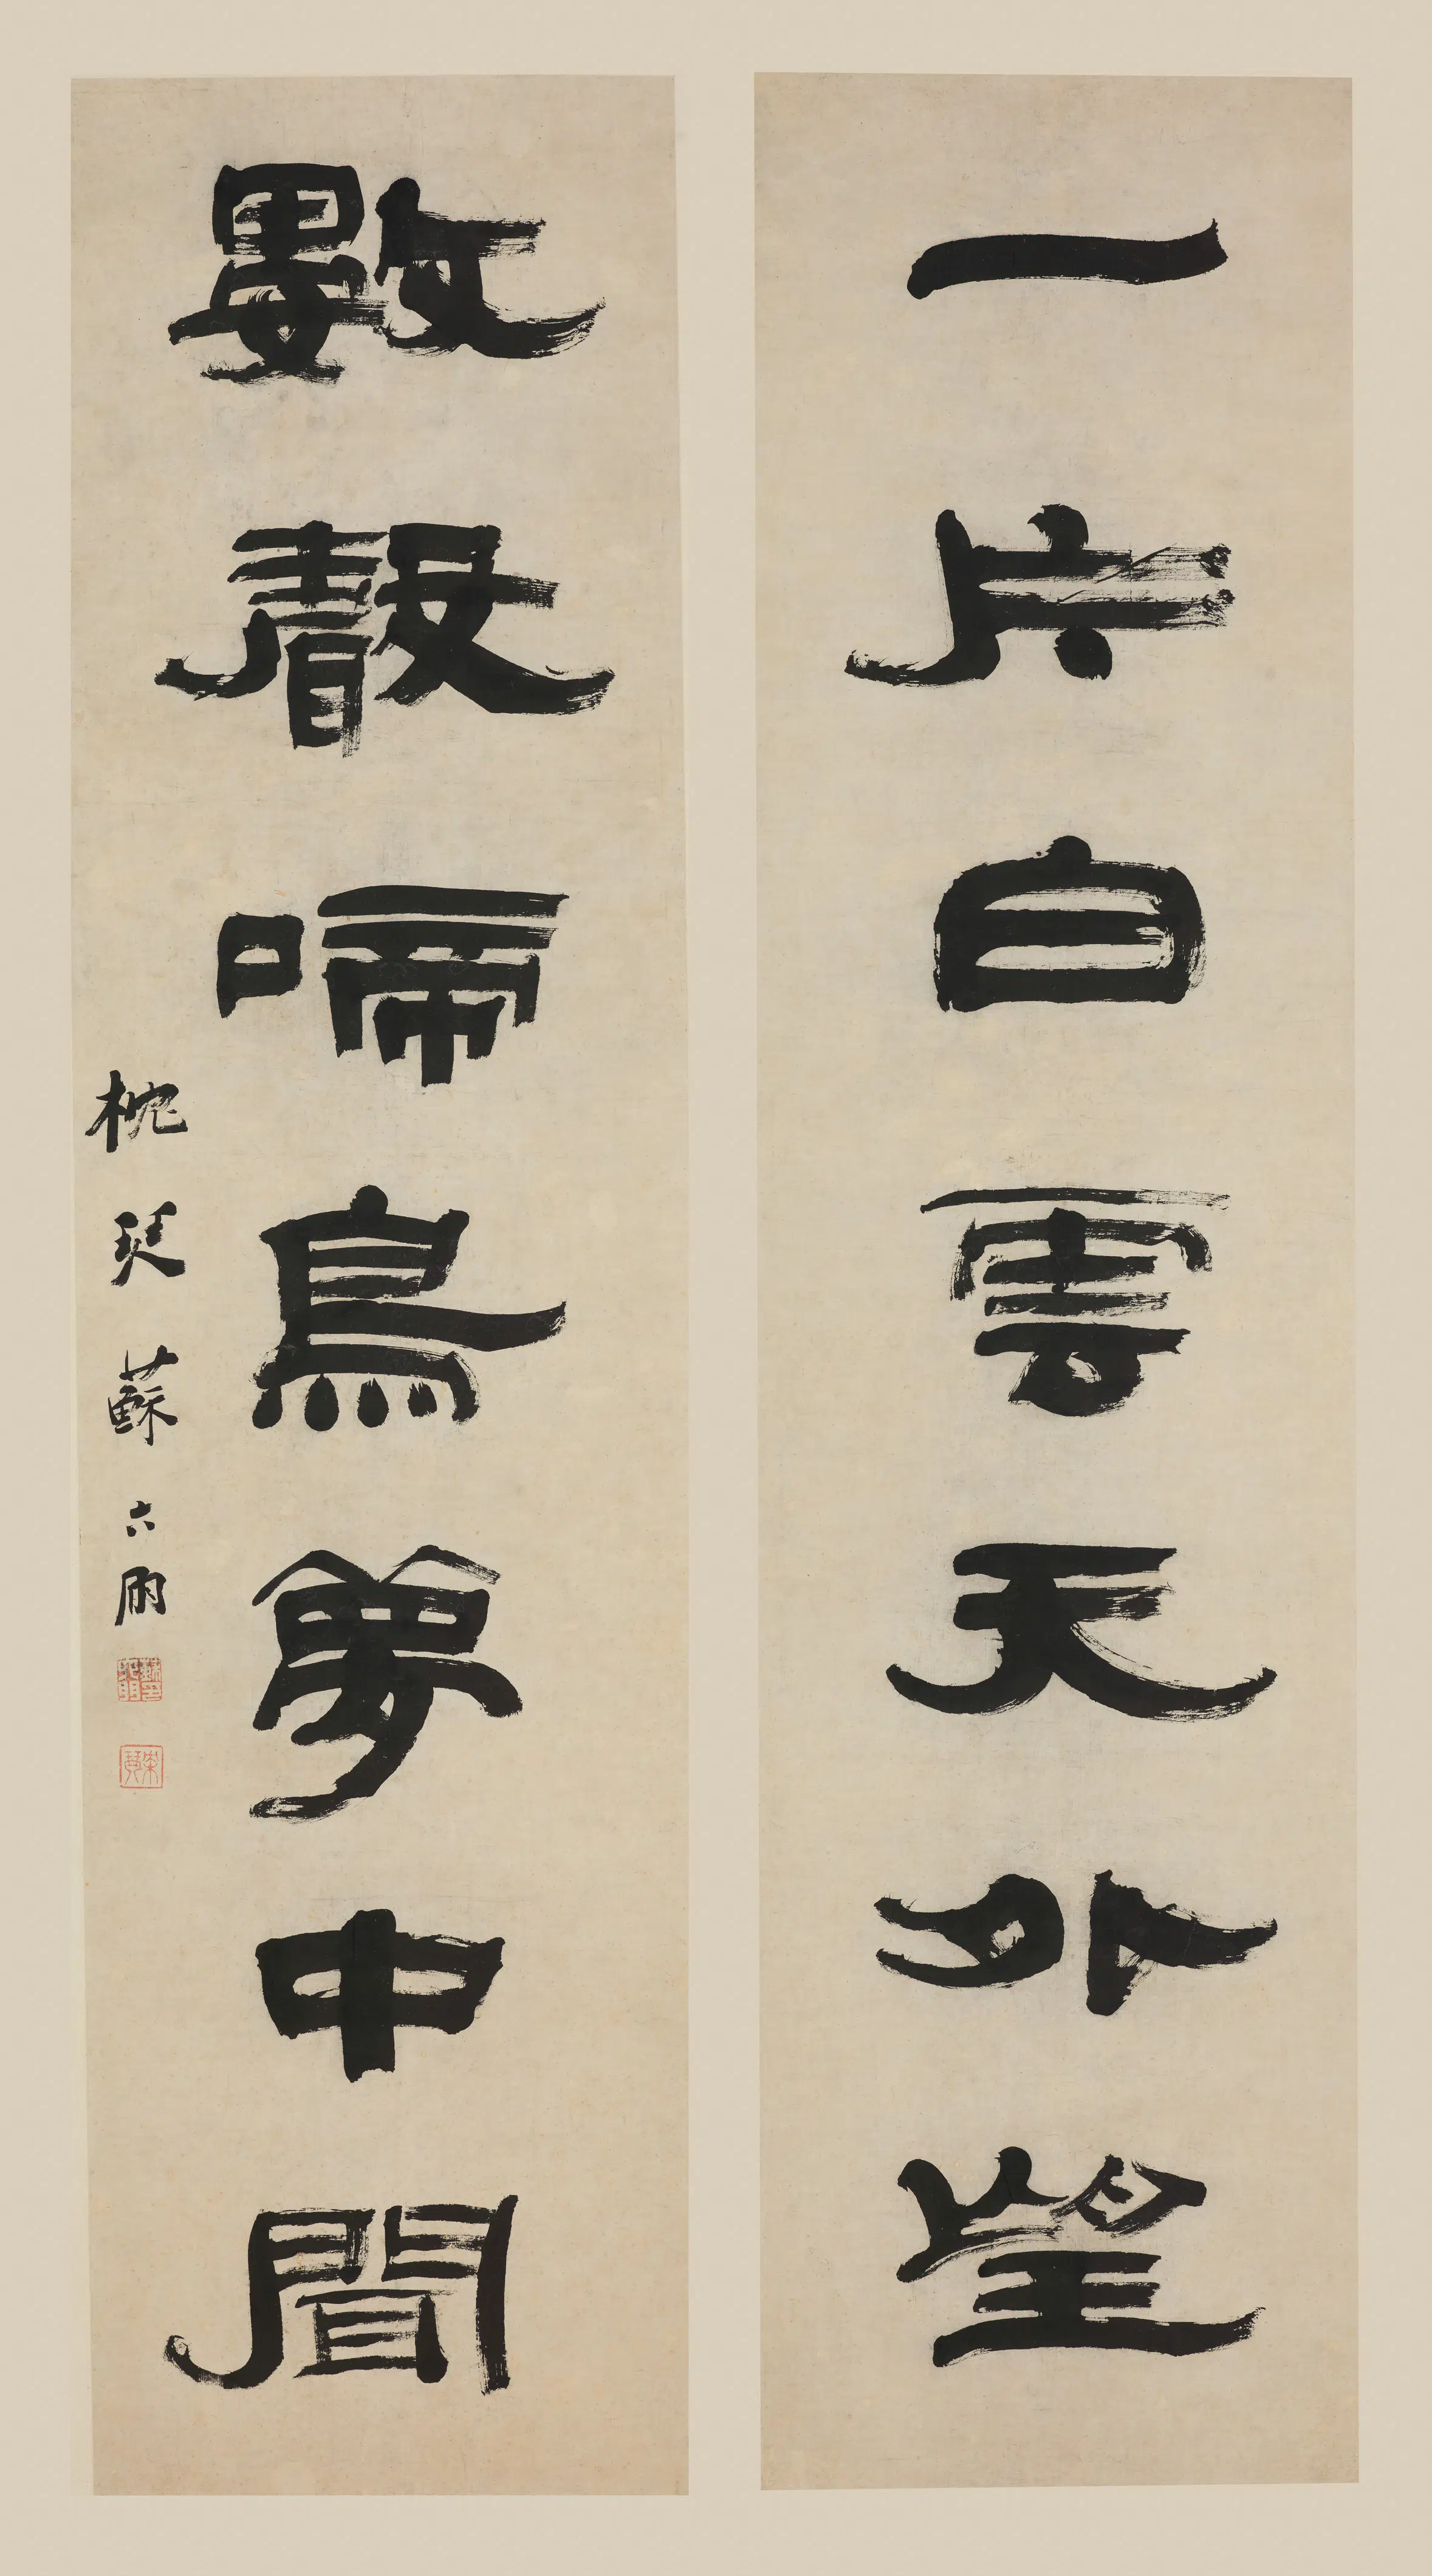 一片白雲天外望
數聲啼鳥夢中聞
枕琴蘇六朋